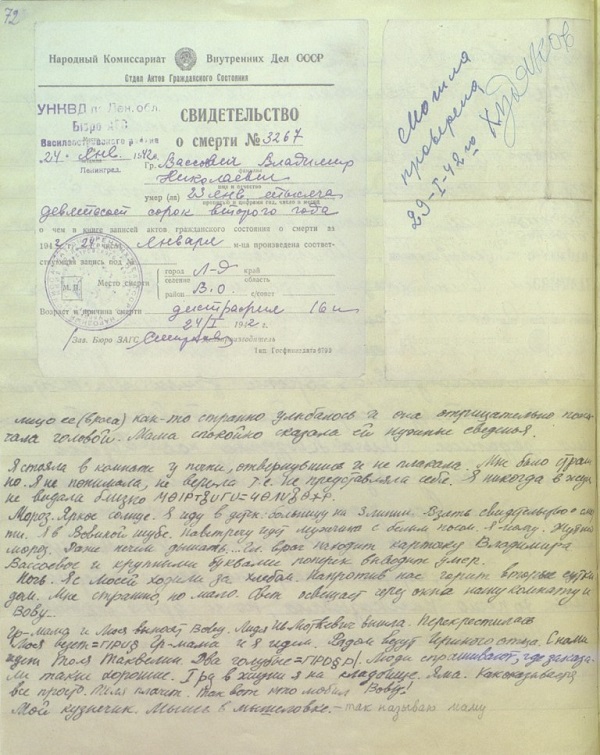 72
Народный Комиссариат Внутренних Дел СССР
Отдел Актов Гражданского Состояния
УНКВД по Лен. обл.
Бюро ЗАГС
Василеостровского района
24 Янв. 1942 г.
Ленинград.
СВИДЕТЕЛЬСТВО
о смерти № 3267
Гр. Вассоевич Владимир
фамилия
Николаевич
имя и отчество
умер (ла) 23 янв тысяча
прописью и цифрами год, число и месяц
девятьсот сорок второго года
о чем в книге записей актов гражданского состояния о смерти за
1942 г. 24 числа Января м-ца произведена соответ-
ствующая запись под №
М. П.
Место смерти
город Л-д край
селение область
район В.О.
Возраст и причина смерти дистрофия 16 л
24/I 1942 г.
Зав. Бюро ЗАГС
Могила
проверена
29-I-42 го
Худяков
лицо ее (врача) как-то странно улыбалось и она отрицательно пока-
чала головой. Мама спокойно сказала ей нужные сведенья.
Я стояла в комнате у печки, отвернувшись и не плакала. Мне было страш
но. Я не понимала, не верила т.е. не представляла себе. Я никогда в жизни
не видала близко
Мороз. Яркое солнце. Я иду в детск. больницу на 3 линии. Взять свидетельство о сме
ти. Я в Вовиной шубе. Навстречу идет мужчина с белым носом. Я иду. Жутко
мороз. Даже нечем дышать... Гл. врач находит карточку Владимира
Вассоевич и крупными буквами поперек выводит умер.
Ночь. Я с Мосей ходили за хлебом. Напротив нас горит вторые сутки
дом. Мне страшно, но мало. Свет освещает через окна нашу комнату и
Вову...
мама и Мося выносят Вову. Лидия вышла. Перекрестилась
Мося везет мама и я идем. Рядом везут чьиного отца. С нами
идет Толя Таквелин. Два голубые Люди спрашивают, где заказа-
ли такие хорошие. I раз в жизни я на кладбище. Яма. Как оказывается
все просто. Толя плачит. Так вот кто любил Вову!
Мой кузнечик. Мышь в мышеловке. - так называю маму